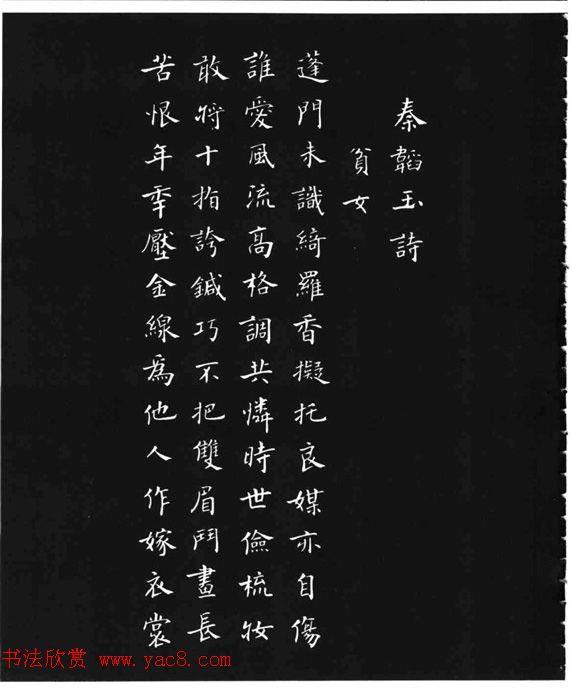 秦韜玉詩
貧女
蓬門未識綺羅香擬托良媒亦自傷
誰愛風流高格調共憐時世儉梳妝
敢將十指誇鍼巧不把雙眉鬥畫長
苦恨年年壓金線為他人作嫁衣裳
书法欣赏 www.yac8.com